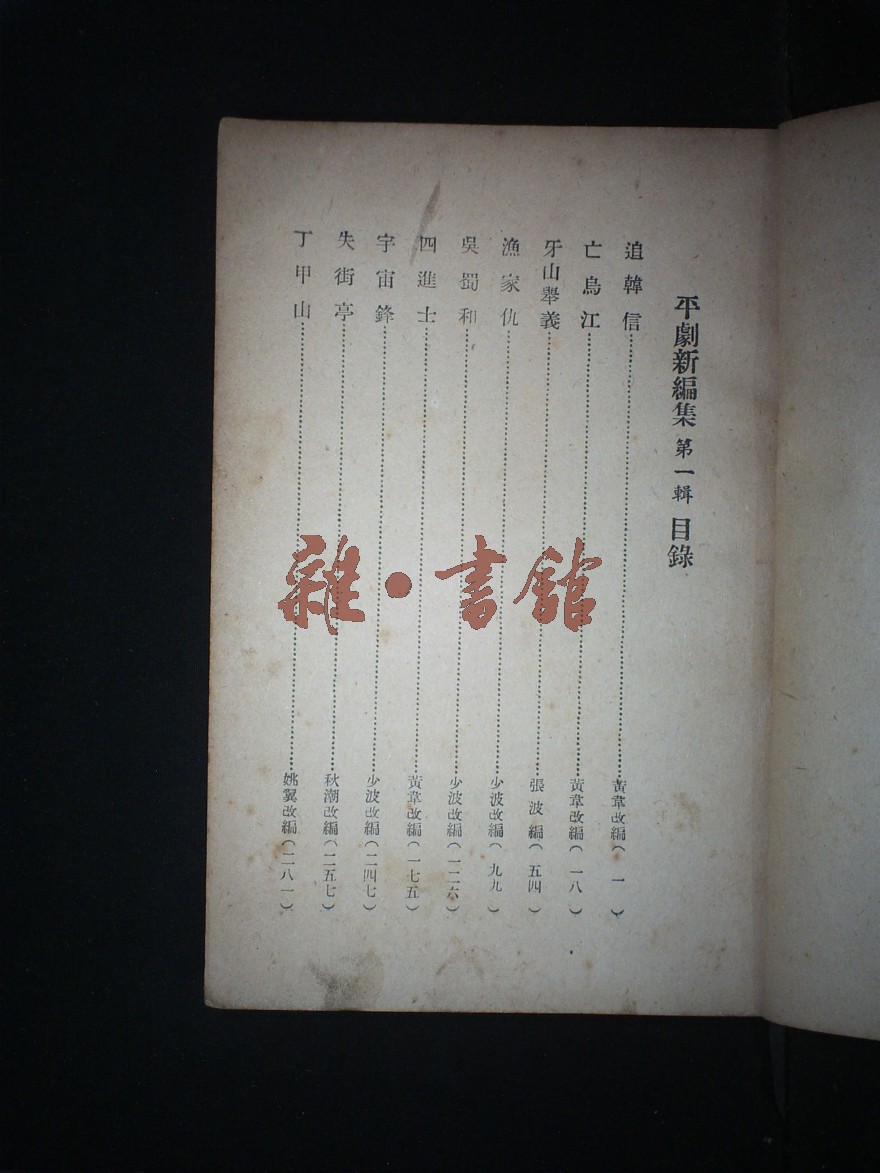 平劇新編集 第一輯 目錄
追韓信……黃韋改編(一)
亡烏江……黃韋改編(一八)
牙山舉義……張波編(五四)
漁家仇……少波改編(九九)
吳蜀和……少波改編(一二六)
四進士……黃韋改編(一七五)
宇宙鋒……少波改編(二四七)
失街亭……秋潮改編(二五七)
丁甲山……姚翼改編(二八一)
雜·書館